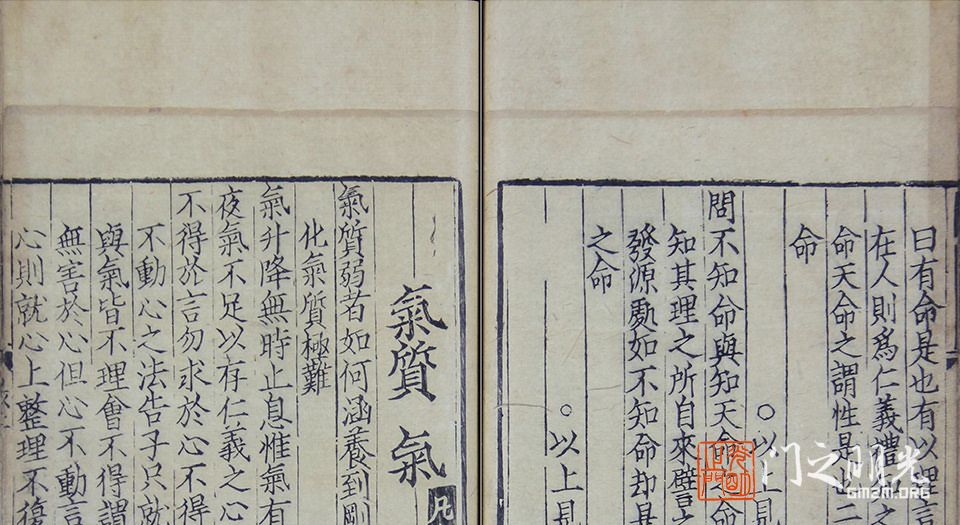 曰有命是也有以理言
在人則爲仁義禮
命天命之謂性是也二
命
○以上見
問不知命與知天命之命
知其理之所自來譬之
發源處如不知命却是
之命
○以上見
氣質 氣
氣質弱者如何涵養到剛
化氣質極難
氣升降無時止息惟氣有
夜氣不足以存仁義之心
不得於言勿求於心不得
不動心之法告子只就
與氣皆不理會不得謂
無害於心但心不動言
心則就心上整理不復
门之明光
GMZM.ORG